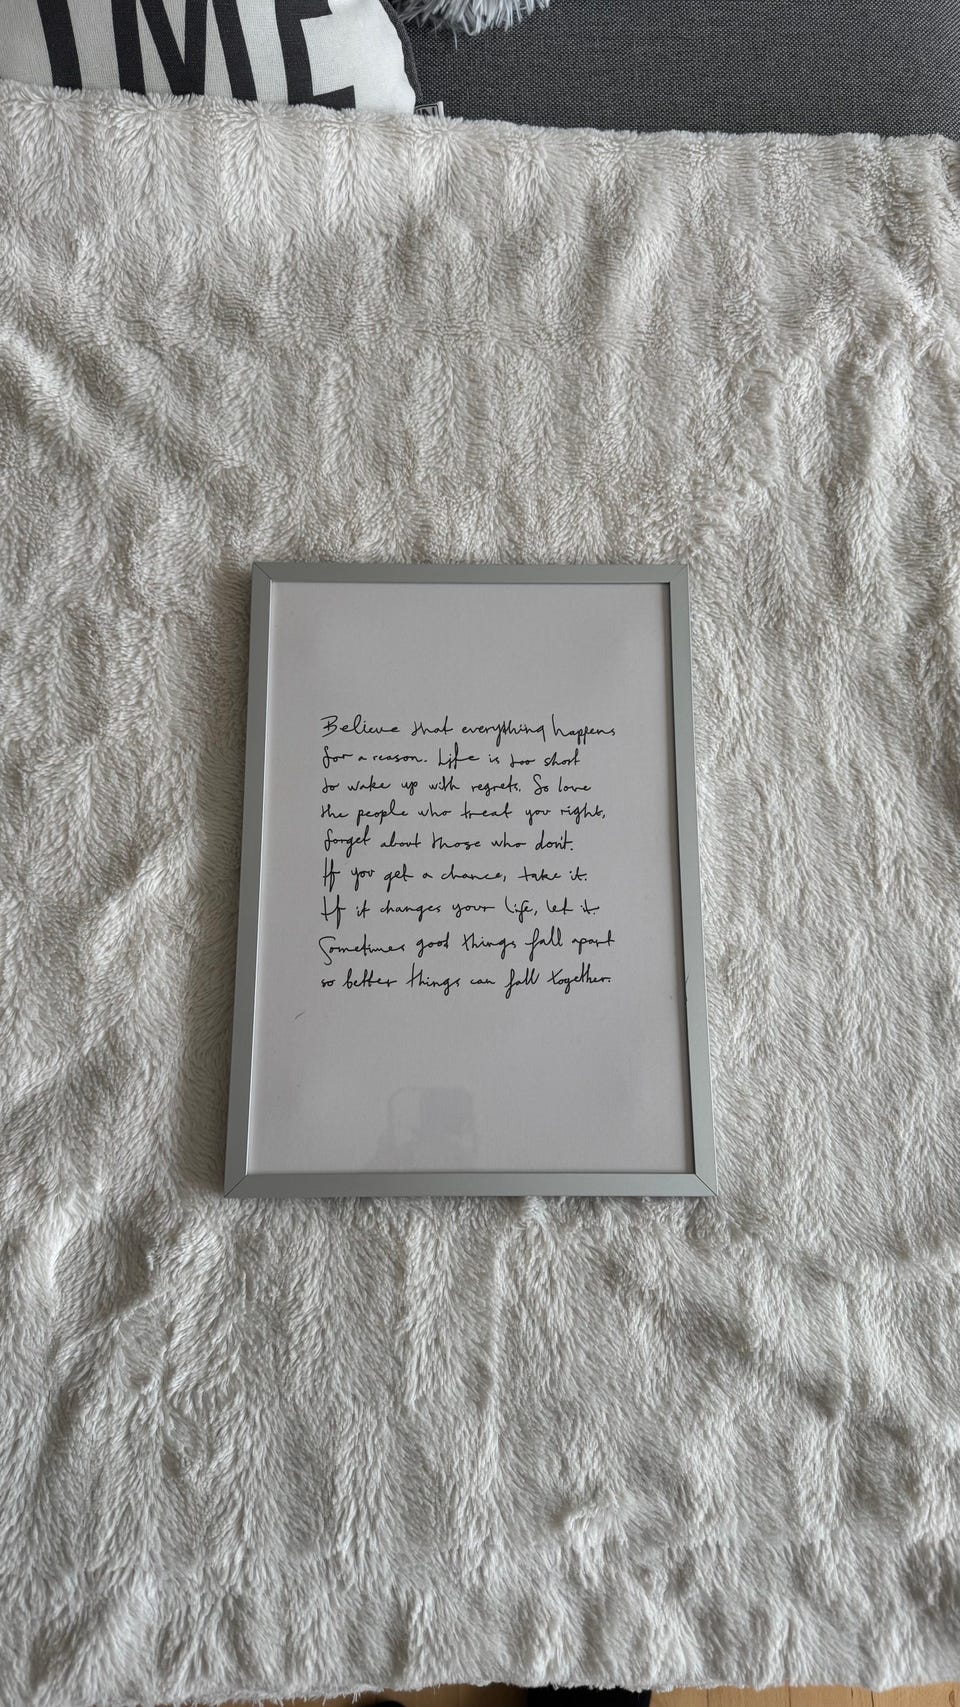 IME
Believe that everything happens
for a reason. Life is too short
to wake up with regrets. So love
the people who treat you right,
forget about those who don't.
If you get a chance, take it.
If it changes your life, let it.
Sometimes good things fall apart
so better things can fall together.